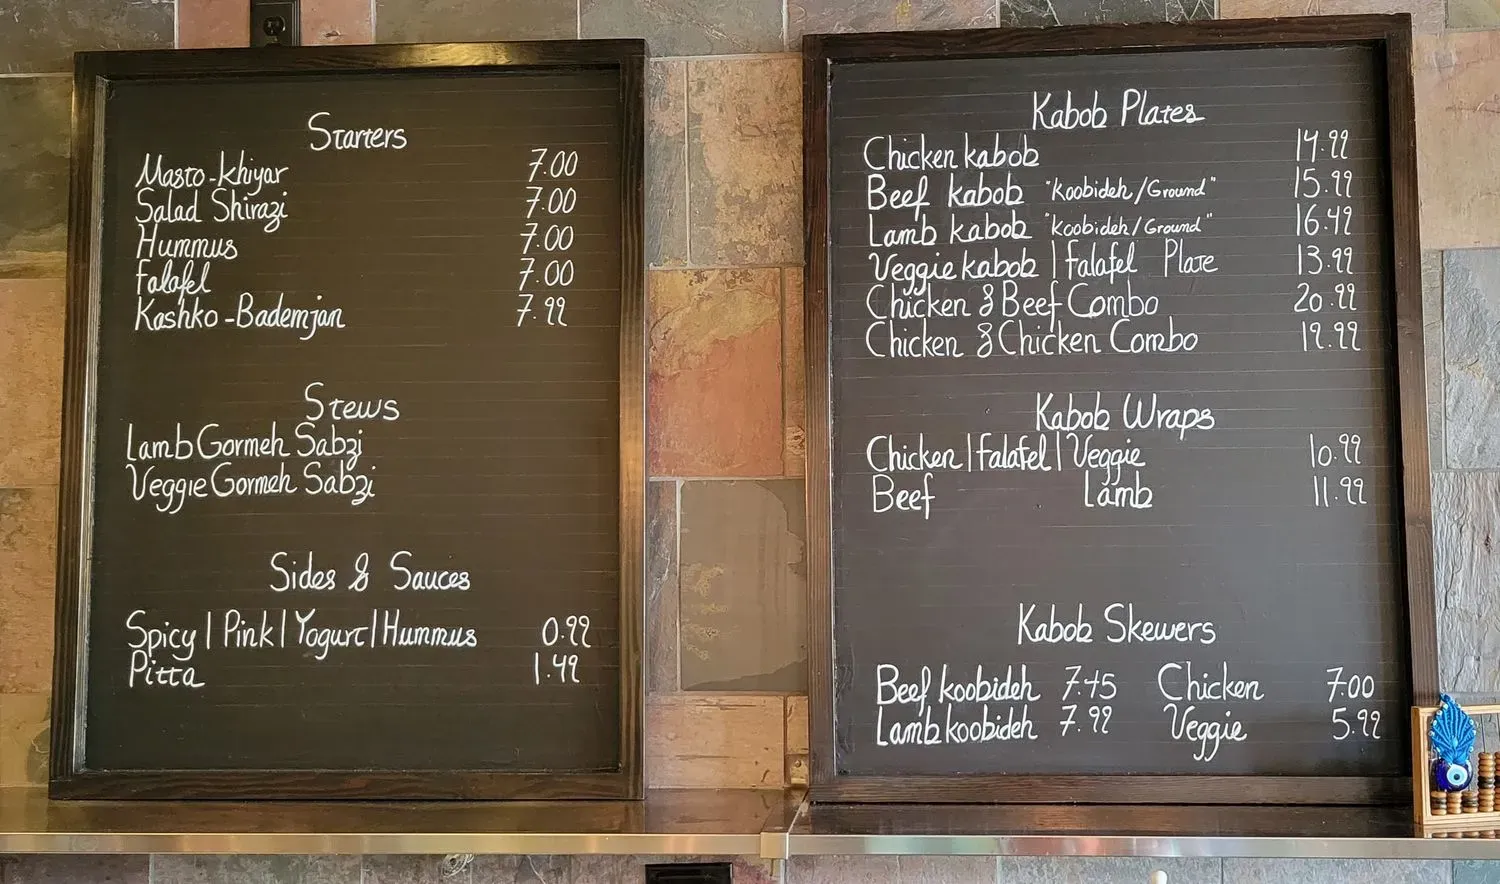 Starters
Masto-khiyar 7.00
Salad Shirazi 7.00
Hummus 7.00
Falafel 7.00
Kashko-Bademjan 7.99
Stews
Lamb Gormeh Sabzi
Veggie Gormeh Sabzi
Sides & Sauces
Spicy | Pink | Yogurt | Hummus 0.99
Pitta 1.49
Kabob Plates
Chicken kabob 14.99
Beef kabob "koobideh/Ground" 15.99
Lamb kabob "koobideh/Ground" 16.49
Veggie kabob | Falafel Plate 13.99
Chicken & Beef Combo 20.99
Chicken & Chicken Combo 19.99
Kabob Wraps
Chicken | Falafel | Veggie 10.99
Beef Lamb 11.99
Kabob Skewers
Beef koobideh 7.45 Chicken 7.00
Lamb koobideh 7.99 Veggie 5.99